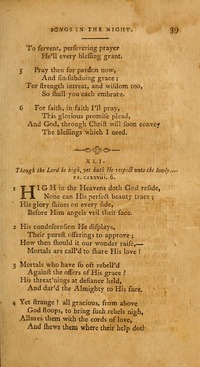 SONGS IN THE NIGHT. 39
To servent, persevering prayer
He'll every blessing grant.
5 Pray then for pardon now,
And sin-subduing grace;
For strength intreat, and wisdom too,
So shall you each embrace.
6 For faith, in faith I'll pray,
This glorious promise plead,
And God, through Christ will soon convey
The blessings which I need.
XLI.
Though the Lord be high, yet hath He respect unto the lowly.—
PS. CXXXVIII. 6.
1 HIGH in the Heavens doth God reside,
None can His perfect beauty trace;
His glory shines on every side,
Before Him angels veil their face.
2 His condescension He displays,
Their purest offerings to approve;
How then should it our wonder raise,—
Mortals are call'd to share His love!
3 Mortals who have so oft rebell'd
Against the offers of His grace?
His threat'nings at defiance held,
And dar'd the Almighty to His face.
4 Yet strange! all gracious, from above
God stoops, to bring such rebels nigh,
Allures them with the cords of love,
And shews them where their help doth